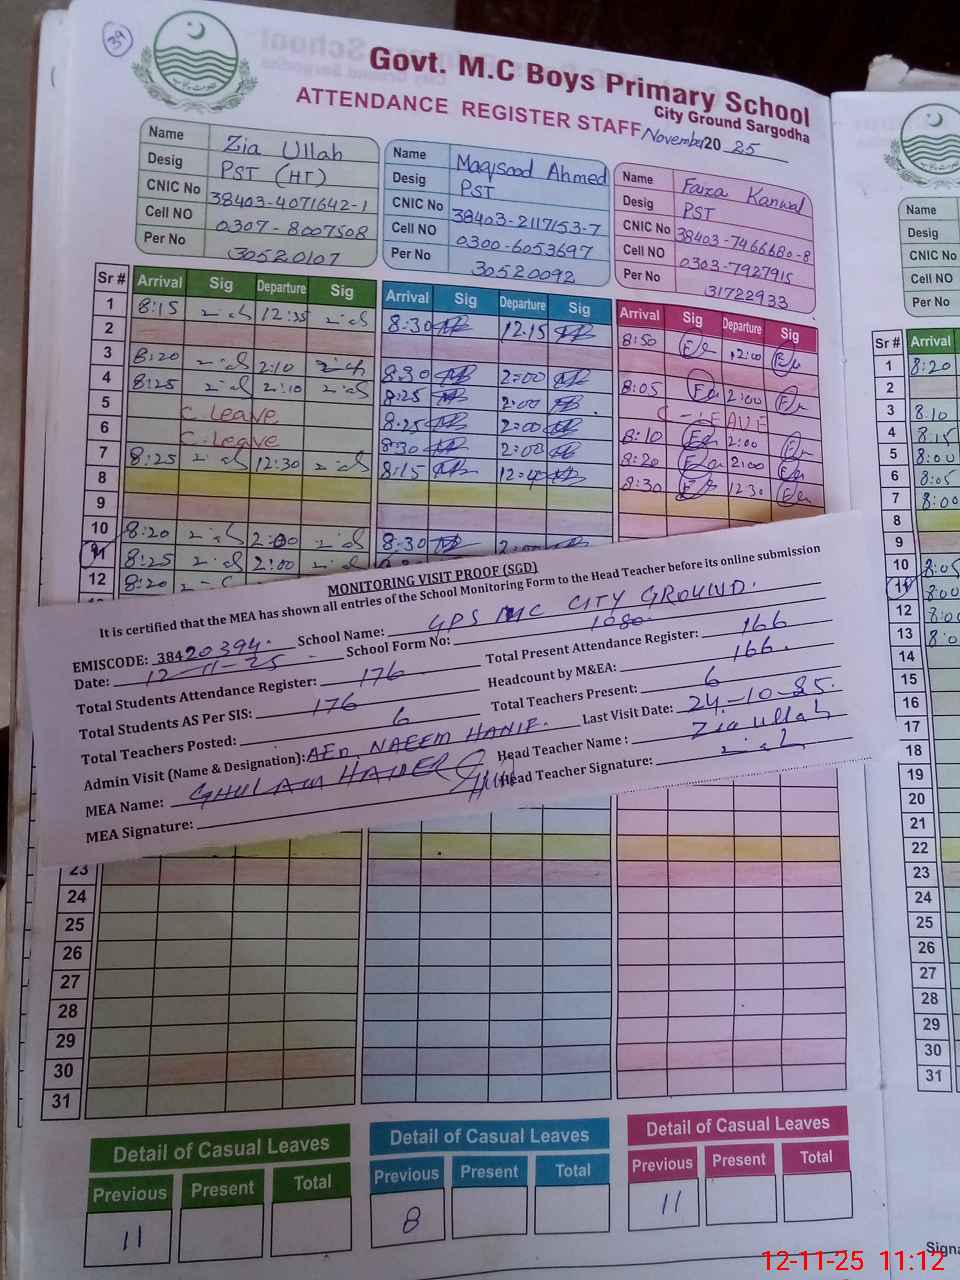 39
Govt. M.C Boys Primary School
City Ground Sargodha
ATTENDANCE REGISTER STAFF November 2025
Name Zia Ullah
Desig PST (HT)
CNIC No 38403-4071642-1
Cell NO 0307-8007508
Per No 30520107
Name Maqsood Ahmed
Desig PST
CNIC No 38403-2117153-7
Cell NO 0300-6053697
Per No 30520092
Name Faiza Kanwal
Desig PST
CNIC No 38403-7466680-8
Cell NO 0303-7927915
Per No 31722933
Sr # Arrival Sig Departure Sig Arrival Sig Departure Sig Arrival Sig Departure Sig
1 8:15 12:35 8:30 12:15 8:50 12:00
2
3 8:20 2:10 8:30 2:00 8:05 2:00
4 8:25 2:10 8:25 2:00 C-LEAVE
5 C. Leave 8:25 2:00 8:10 2:00
6 C. Leave 8:30 2:00 8:20 2:00
7 8:25 12:30 8:15 12:4 8:30 12:30
8
9
10 8:20 2:00 8:30 2:00
11 8:25 2:00
12 8:20
MONITORING VISIT PROOF (SGD)
It is certified that the MEA has shown all entries of the School Monitoring Form to the Head Teacher before its online submission
EMISCODE: 38420394. School Name: GPS MC CITY GROUND.
Date: 12-11-25 School Form No: 1080.
Total Students Attendance Register: 176 Total Present Attendance Register: 166
Total Students AS Per SIS: 176 Headcount by M&EA: 166.
Total Teachers Posted: 6 Total Teachers Present: 6
Admin Visit (Name & Designation): AEO NAEEM HANIF. Last Visit Date: 24-10-25.
MEA Name: GHULAM HAIDER Head Teacher Name : Zia ullah
MEA Signature: Head Teacher Signature:
23
24
25
26
27
28
29
30
31
Detail of Casual Leaves
Previous Present Total
11
Detail of Casual Leaves
Previous Present Total
8
Detail of Casual Leaves
Previous Present Total
11
Name
Desig
CNIC No
Cell NO
Per No
Sr # Arrival
1 8:20
2
3 8:10
4 8:15
5 8:00
6 8:05
7 8:00
8
9
10 8:05
11 8:00
12 8:00
13 8:0
14
15
16
17
18
19
20
21
22
23
24
25
26
27
28
29
30
31
12-11-25 11:12